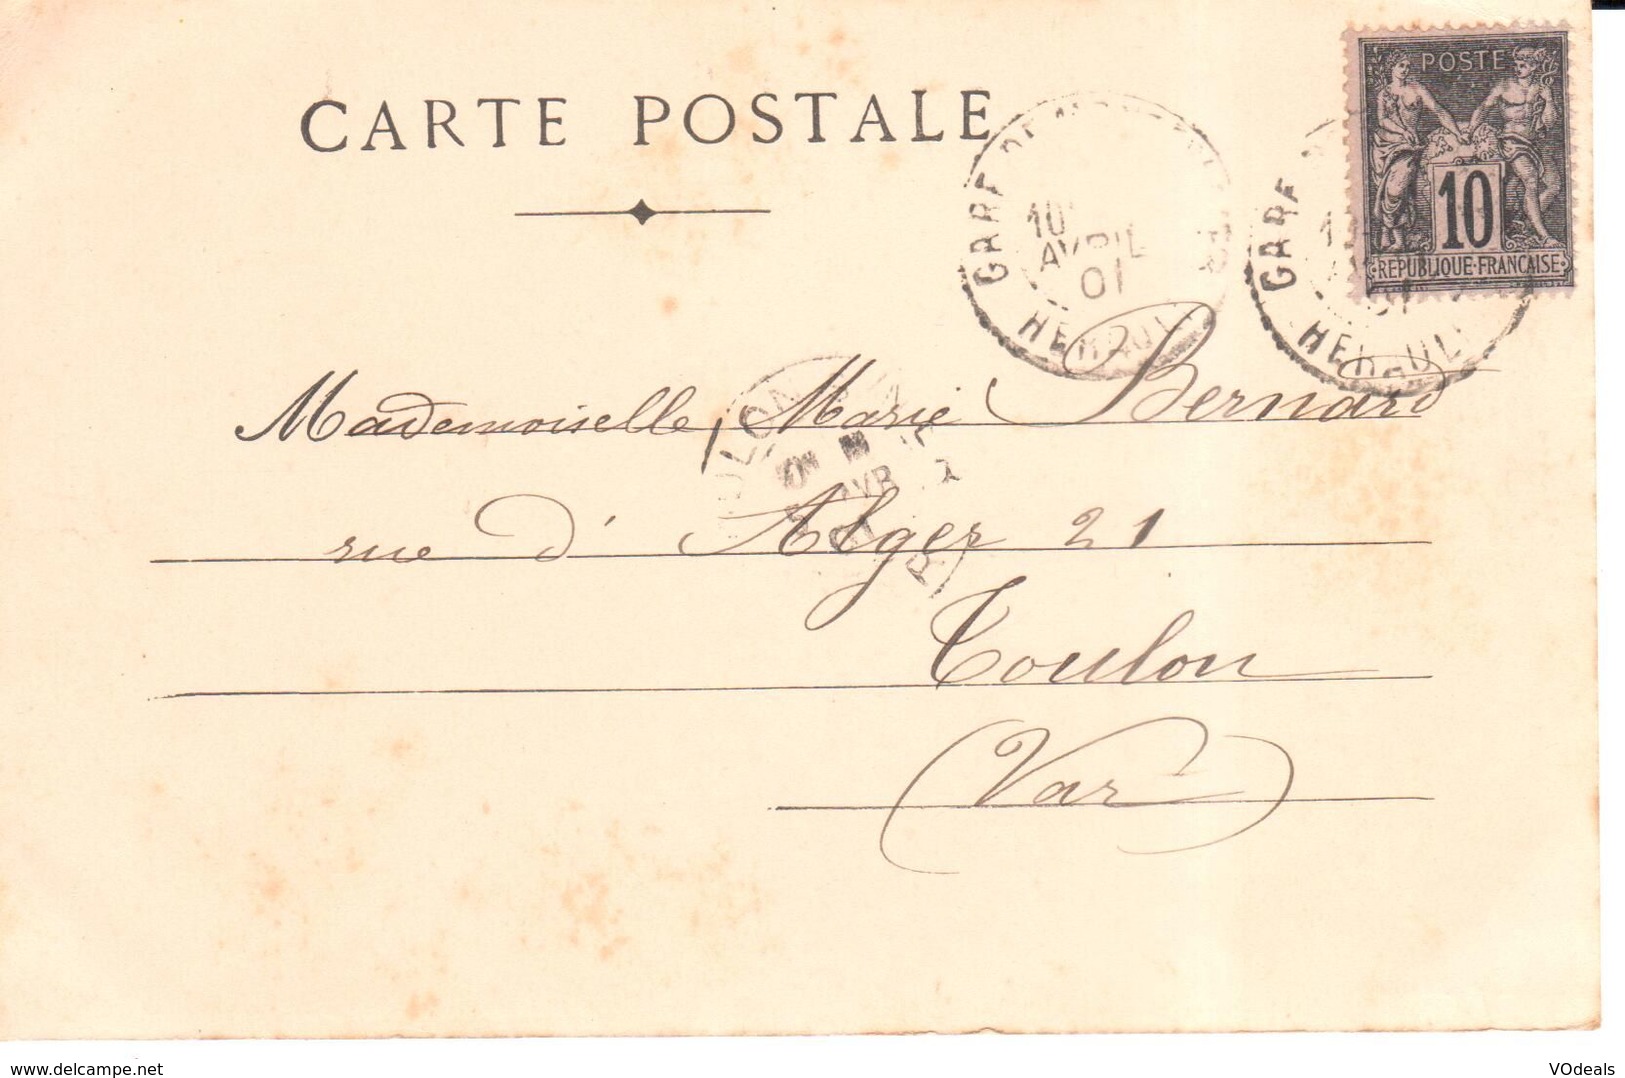 CARTE POSTALE
POSTE
10
REPUBLIQUE·FRANCAISE
GARE DE
10
AVRIL
01
HERAULT
GARE
01
HERAULT
Mademoiselle Marie Bernard
rue d'Alger 21
Toulon
(Var)
VOdeals
www.delcampe.net